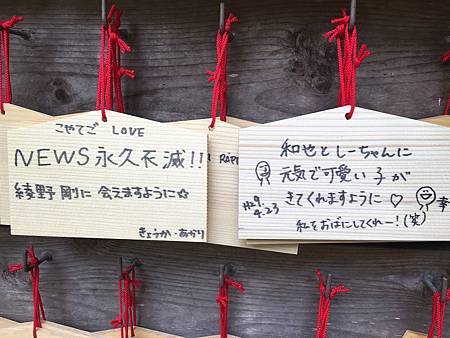 こやてご LOVE
NEWS永久不滅!!
綾野剛に会えますように☆
きょうか・あかり
RAP
和也としーちゃんに
元気で可愛い子が
きてくれますように♡
H29.
4.23
私をおばにしてくれー!(笑)